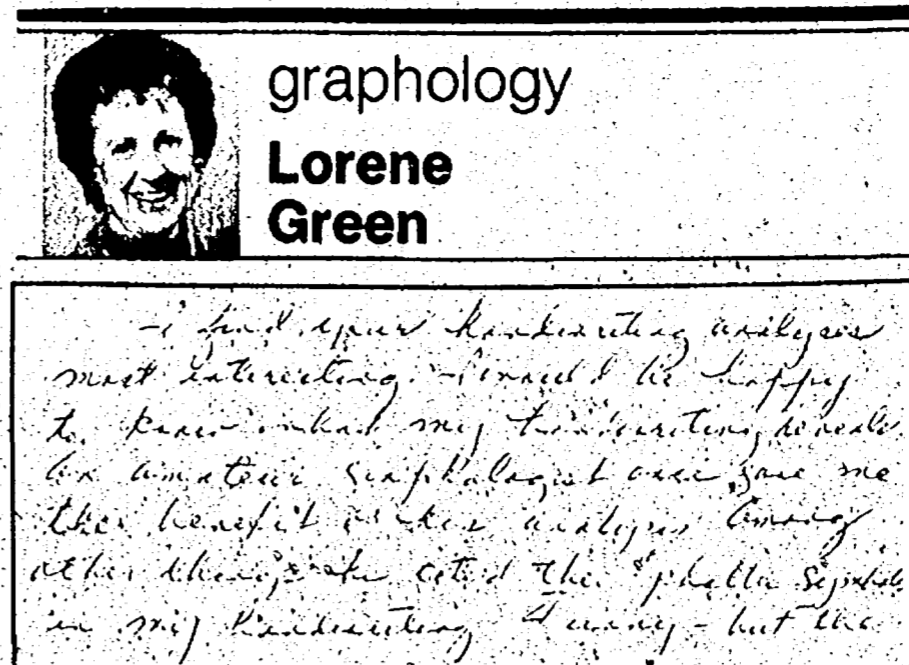 graphology
Lorene
Green
I find your handwriting analysis
most interesting. I would be happy
to know what my handwriting reveals.
An amateur graphologist once gave me
the benefit of her analysis. Among
other things she cited the "phallic symbols
in my handwriting - but the